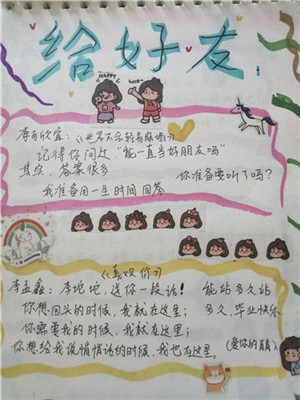 给好友
HAPPY
李可欣宜：《世界不会轻易崩塌》
记得你问过"能一直当好朋友吗"
其实，答案很多 你准备要听了吗？
我准备用一生时间回答
《喜欢你》
李孟鑫：李坨坨，送你一段话！ 能站多久站
你想回头的时候，我就在这里； 多久，毕业快乐
你需要我的时候，我就在这里；
你想给我说悄悄话的时候，我也在这里。 (爱你的眉)